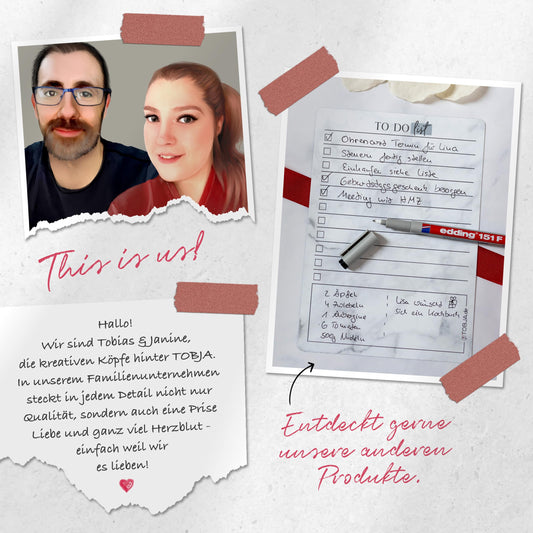 This is us!
Hallo!
Wir sind Tobias & Janine,
die kreativen Köpfe hinter TOBJA.
In unserem Familienunternehmen
steckt in jedem Detail nicht nur
Qualität, sondern auch eine Prise
Liebe und ganz viel Herzblut -
einfach weil wir
es lieben!
TO DO list
Ohrenarzt Termin für Lina
Steuern fertig stellen
Einkaufen siehe Liste
Geburtstagsgeschenk besorgen
Meeting wie HMZ
edding 151 F
2 Äpfel
4 Zwiebeln
1 Aubergine
6 Tomaten
500g Nudeln
Lisa wünscht
sich ein Kochbuch
TOBJA.de
Entdeckt gerne
unsere anderen
Produkte.